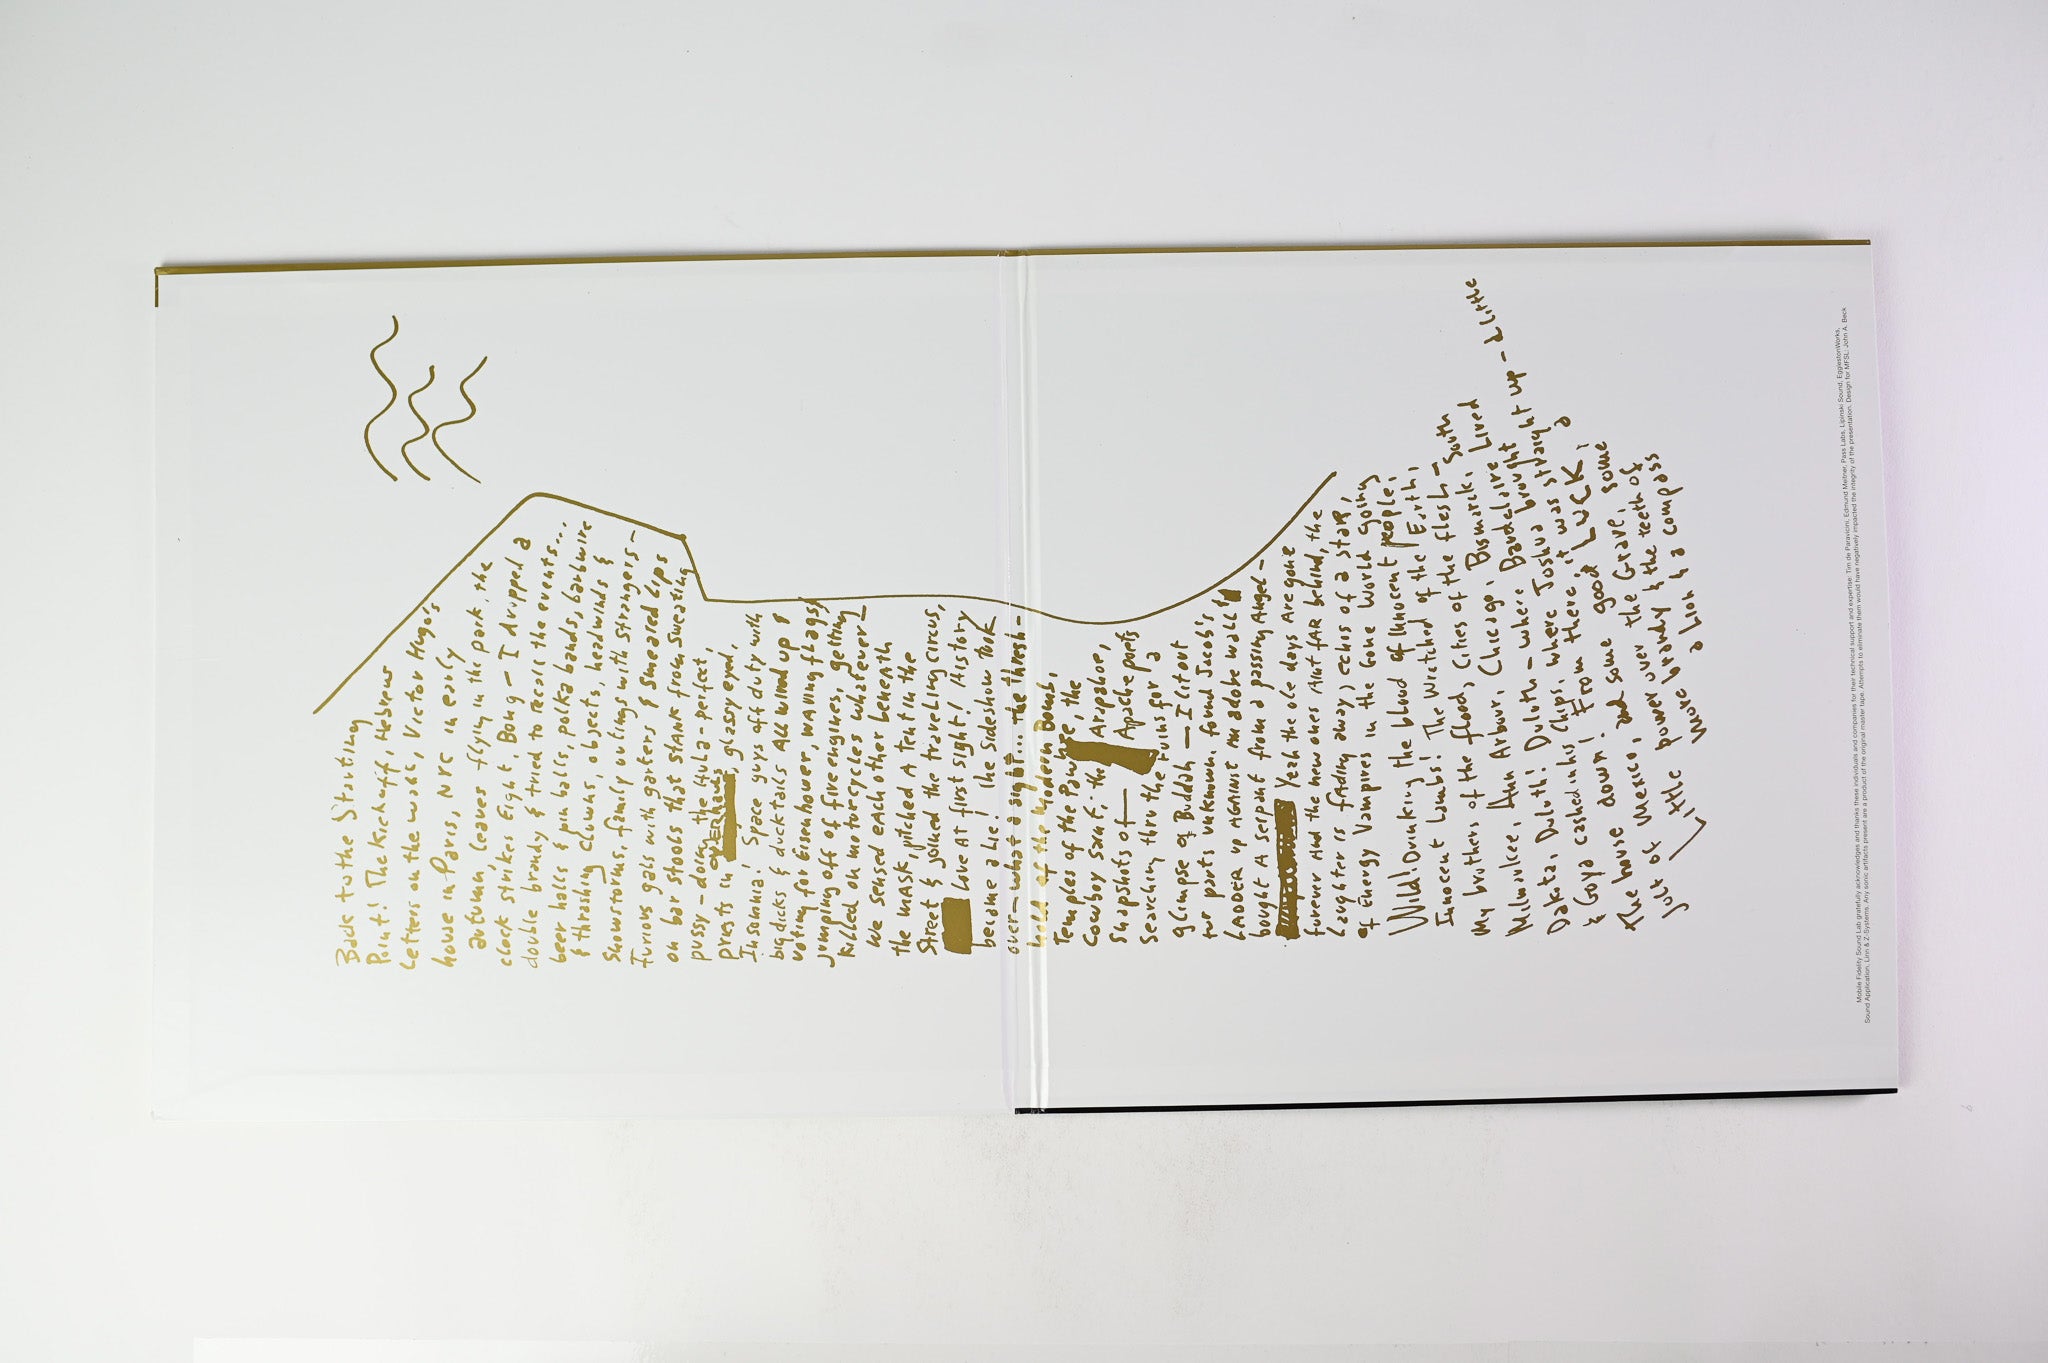 Back to the Starting
Point! The Kickoff, Hebrews
Letters on the wall, Victor Hugo's
house in Paris, NYC in early
autumn, leaves flying in the park, the
clock strikes Eight, Bong — I dropped a
double brandy & tried to recall the events...
beer halls & pin balls, polka bands, barbwire
& thrashing Clowns, objects, headwinds &
Snowstorms, family outings with Strangers —
Furious gals with garters & smeared Lips
on bar stools that stank from sweating
pussy — doing the Hula — perfect,
priests in OVERHAULS, glassy eyed,
Insomnia! Space guys off duty with
big dicks & duck tails All wired up &
voting for Eisenhower, waving flags,
jumping off of fire engines, getting
killed on motorcycles whatever —
We sensed each other beneath
the MASK, pitched A tent in the
Street & joined the traveling circus,
Love At first sight! History
became a lie! the Sideshow took
over — what a sight... the thresh-
hold of the Modern Bomb,
Temples of the Pawnee, the
Cowboy Saint, the Arapahoe,
Snapshots of — Apache poets
Searching thru the ruins for a
glimpse of Buddah — I lit out
for parts unknown, found Jacob's
LADDER up AGAINST An adobe wall &
bought A serpent from a passing Angel —
Yeah the ole days Are gone
forever And the new ones Aint fAR behind, the
Laughter is fAding away, echos of a staR,
of Energy Vampires in the Gone World going
Wild! Drinking the blood of innocent people,
Innocent Lambs! The Wretched of the Earth,
My brothers of the flood, Cities of the flesh — South
Milwaukee, Ann Arbor, Chicago, Bismarck,
Dakota, Duluth! Duluth — where Baudelaire Lived
& Goya cashed in his Chips, where Joshua brought
the house down! From there, it was straight up — a little
jolt of Mexico, and some good LUCK, a
little power over the Grave, some
more brandy & the teeth of
a Lion & a compass
Mobile Fidelity Sound Lab gratefully acknowledges and thanks these individuals and companies for their technical support and expertise: Tim de Paravicini, Edmund Meitner, Pass Labs, Lipinski Sound, EgglestonWorks,
Sound Application, Linn & Z-Systems. Any sonic artifacts present are a product of the original master tape. Attempts to eliminate them would have negatively impacted the integrity of the presentation. Design for MFSL: John A. Beck